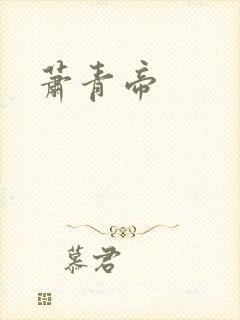 萧青帝
慕君